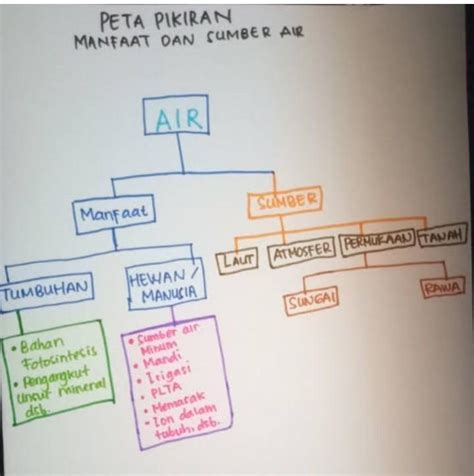 PETA PIKIRAN
MANFAAT DAN SUMBER AIR
AIR
Manfaat
SUMBER
TUMBUHAN
HEWAN/
MANUSIA
LAUT
ATMOSFER
PERMUKAAN
TANAH
SUNGAI
RAWA
• Bahan
Fotosintesis
• Pengangkut
Unsur mineral
dsb.
• Sumber air
Minum
• Mandi
• Irigasi
• PLTA
• Memasak
• Ion dalam
tubuh, dsb.